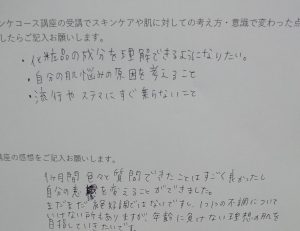 ンケコース講座の受講でスキンケアや肌に対しての考え方・意識で変わった点
したらご記入お願いします。
・化粧品の成分を理解できるようになりたい。
・自分の肌悩みの原因を考えること
・流行やステマにすぐ乗らないこと
講座の感想をご記入お願いします。
1ヶ月間 色々と質問できたことはすごく良かったし
自分の意 を考えることができました。
まだまだ絶好調ではないですし、1つ1つの不調について
いけない所もありますが、年齢に負けない理想の肌を
目指していきたいです。